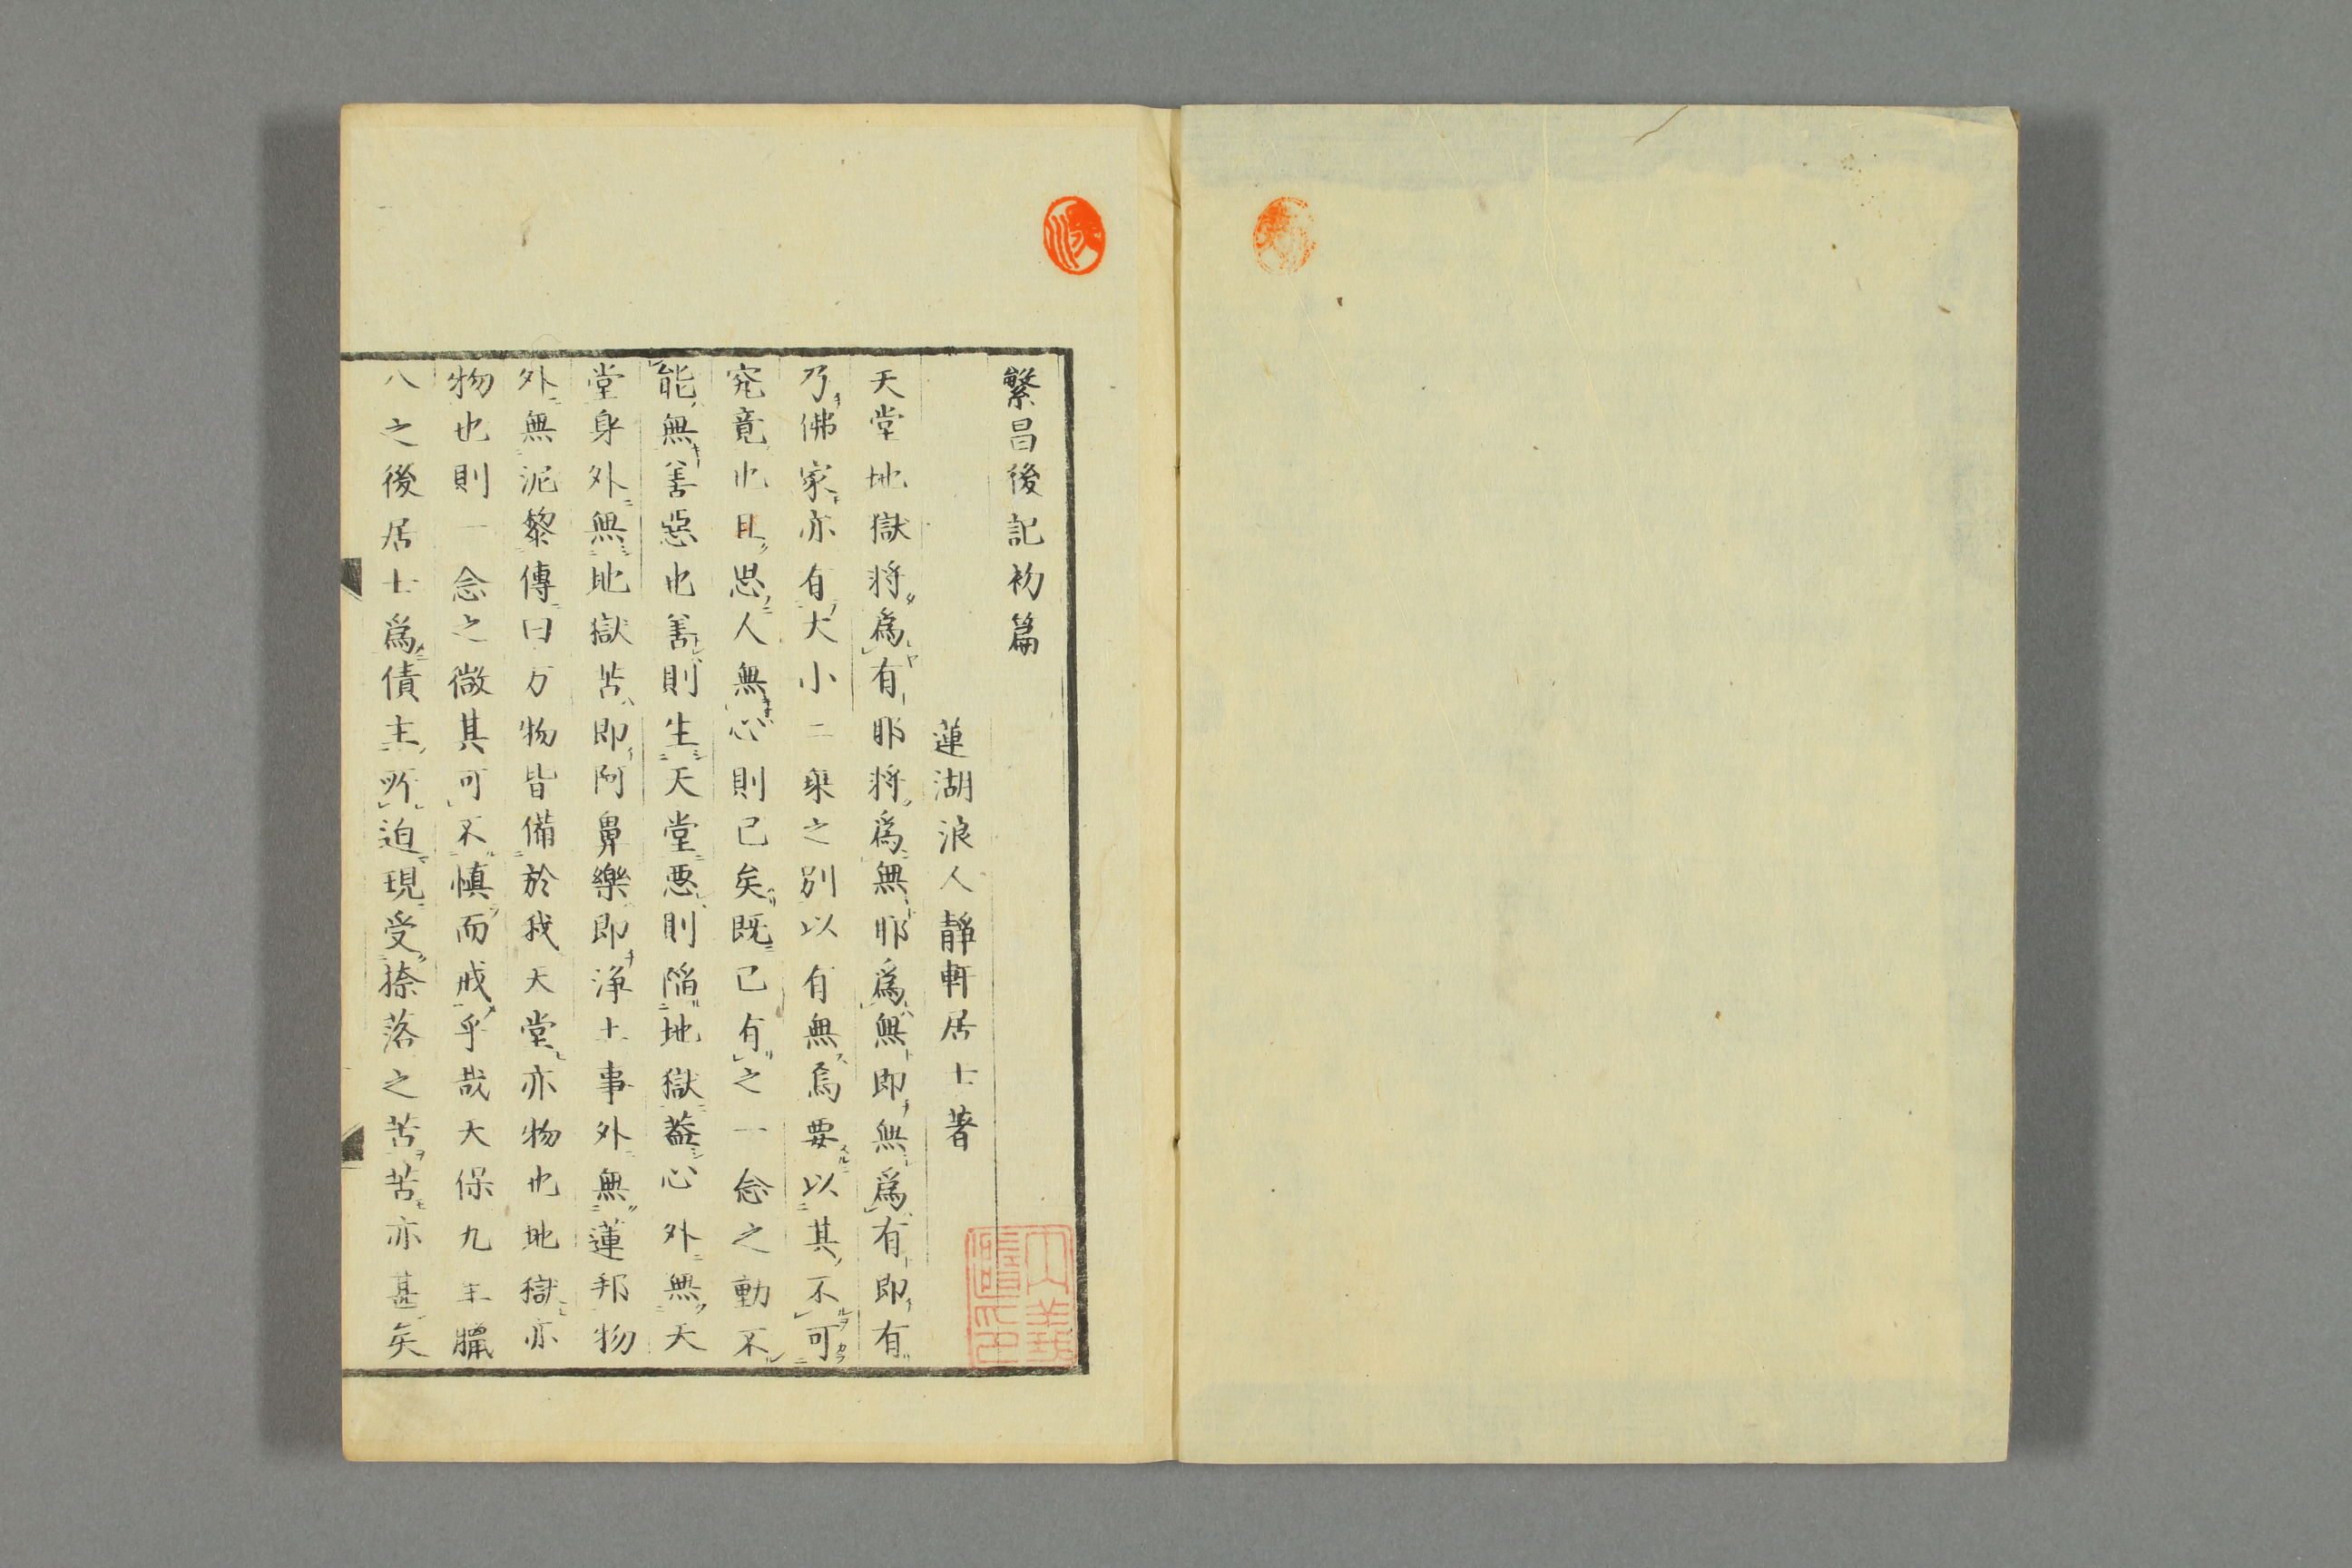 繁昌後記初篇
蓮湖浪人靜軒居士著
天堂地獄将爲有耶将爲無耶爲無即無爲有即有
乃佛家亦有大小二乗之別以有無爲要以其不可
究竟也且思人無心則已矣既已有之一念之動不
能無善惡也善則生天堂悪則陥地獄蓋心外無天
堂身外無地獄苦即阿鼻樂即浄土事外無蓮邦物
外無泥黎傳曰万物皆備於我天堂亦物也地獄亦
物也則一念之微其可不慎而戒乎哉天保九年臘
八之後居士爲債主所迫現受捺落之苦苦亦甚矣